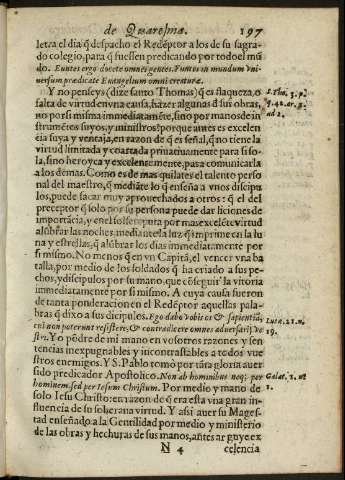 de Quaresma. 197
letra el dia q̃ despacho el Redẽptor a los de su sagra-
do colegio, para q̃ fuessen predicando por todo el mũ
do. Euntes ergo docete omnes gentes. Euntes in mundum vni-
uersum prædicate Euangelium omni creaturæ.
Y no penseys (dize santo Thomas) q̃ es flaqueza, o
S. Tho. 3. p.
falta de virtud en vna causa, hazer algunas d̃ sus obras,
q. 42. ar. 3.
no por si misma immediatamẽte, sino por manos de in
ad 2.
strumẽtos suyos, y ministros: porque antes es excelen
cia suya y ventaja, en razon de q̃ es señal, q̃ no tiene la
virtud limitada y coartada priuatiuamente para si so-
la, sino heroyca y excelentemente, para comunicarla
a los demas. Como es de mas quilates el talento perso
nal del maestro, q̃ mediãte lo q̃ enseña a vnos discipu
los, puede sacar muy aprouechados a otros: q̃ el del
preceptor q̃ solo por su persona puede dar liciones de
importãcia, y en el sol se reputa por mas excelẽte virtud
alũbrar las noches, mediante la luz q̃ imprime en la lu
na y estrellas, q̃ alũbrar los dias immediatamente por
si mismo. No menos q̃ en vn Capitã, el vencer vna ba
talla, por medio de los soldados q̃ ha criado a sus pe-
chos, y dicipulos por su mano, que cõseguir la vitoria
immediatamente por si mismo. A cuya causa fueron
de tanta ponderacion en el Redẽptor aquellas pala-
bras q̃ dixo a sus dicipulos. Ego dabo vobis os & sapientiã,
Lucæ. 21. n.
cui non poterunt resistere, & contradicere omnes aduersarij ve-
19.
stri. Yo põdre de mi mano en vosotros razones y sen-
tencias inexpugnables y incontrastables a todos vue
stros enemigos. Y S. Pablo tomó por tãta gloria auer
sido predicador Apostolico. Non ab hominibus neq; per
Galat. 1. nu
hominem sed per Iesum Christum. Por medio y mano de
1.
solo Iesu Christo: en razon de q̃ era esta vna gran in-
fluencia de su soberana virtud. Y assi auer su Mages-
tad enseñado a la Gentilidad por medio y ministerio
de las obras y hechuras de sus manos, antes arguye ex
N 4 celencia